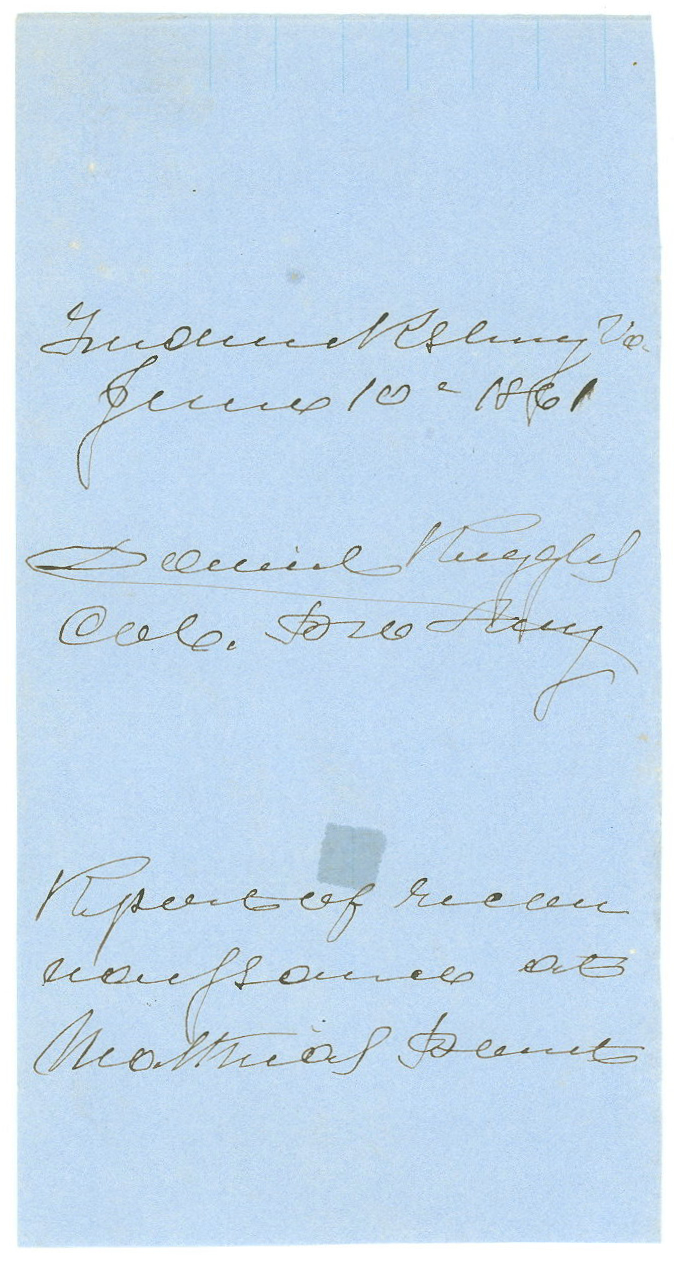 Fredericksburg Va.
June 10 - 1861
Daniel Ruggles
Col. Pro Army
Report of recon
naissance at
Matthias Point